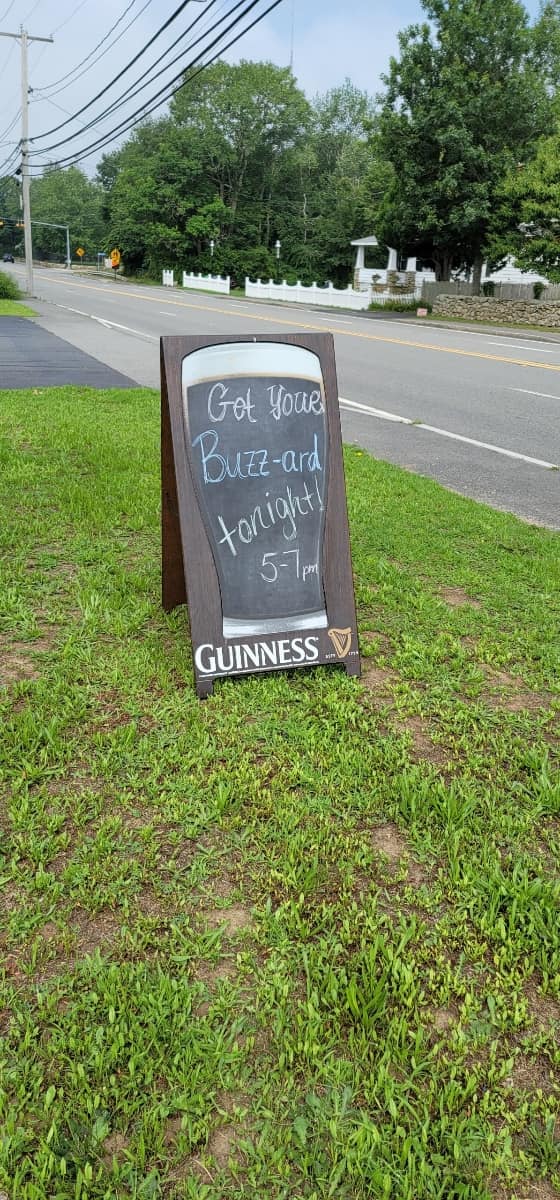 Get Your
Buzz-ard
tonight!
5-7pm
GUINNESS